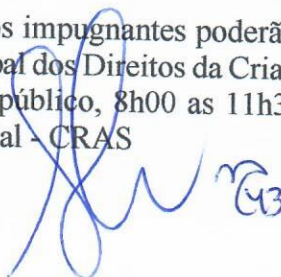 os impugnantes poderã
pal dos Direitos da Cria
público, 8h00 as 11h3
al - CRAS